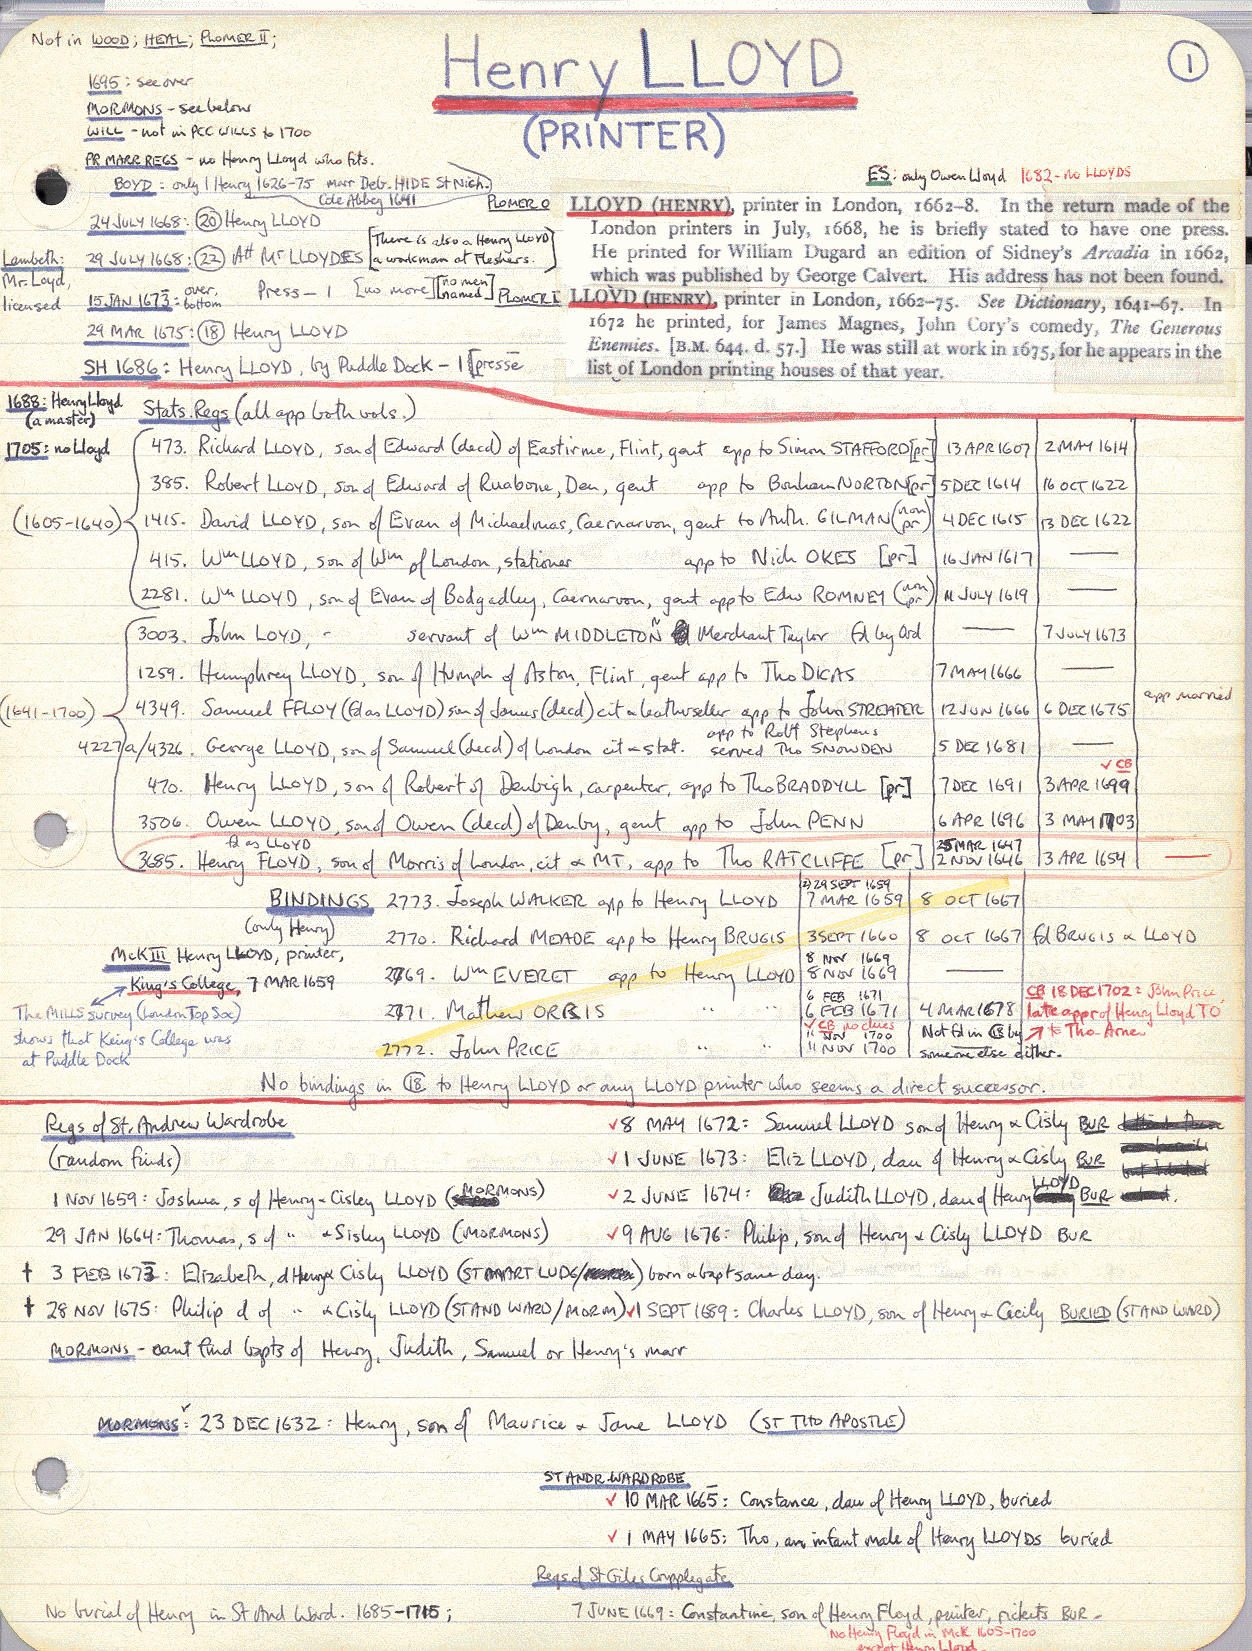 Not in WOOD; HEAL; PLOMER II;
Henry LLOYD
(PRINTER)
1
1695: see over
MORMONS - see below
WILL - not in PCC WILLS to 1700
PR MARR REGS - no Henry Lloyd who fits.
BOYD: only 1 Henry 1626-75 marr Deb. HIDE St Nich.
Cole Abbey 1641
ES: only Owen Lloyd 1682 - no LLOYDS
24 JULY 1668: (20) Henry LLOYD
Lambeth:
Mr Loyd,
licensed
29 JULY 1668: (22) Att Mr LLOYDES
[There is also a Henry LLOYD
a workman at Fleshers.]
15 JAN 1673: over, bottom Press - 1 [no more] [no men named]
29 MAR 1675: (18) Henry LLOYD
SH 1686: Henry LLOYD, by Puddle Dock - 1 [presse
PLOMER O
LLOYD (HENRY), printer in London, 1662–8. In the return made of the
London printers in July, 1668, he is briefly stated to have one press.
He printed for William Dugard an edition of Sidney's Arcadia in 1662,
which was published by George Calvert. His address has not been found.
PLOMER I
LLOYD (HENRY), printer in London, 1662-75. See Dictionary, 1641-67. In
1672 he printed, for James Magnes, John Cory's comedy, The Generous
Enemies. [B.M. 644. d. 57.] He was still at work in 1675, for he appears in the
list of London printing houses of that year.
1688: Henry Lloyd
(a master)
1705: no Lloyd
Stats. Regs (all app both vols.)
(1605-1640)
473. Richard LLOYD, son of Edward (decd) of Eastirme, Flint, gent app to Simon STAFFORD [pr] 13 APR 1607 2 MAY 1614
385. Robert LLOYD, son of Edward of Ruabone, Den, gent app to Bonham NORTON [pr] 5 DEC 1614 16 OCT 1622
1415. David LLOYD, son of Evan of Michaelmas, Caernarvon, gent to Anth. GILMAN (non pr) 4 DEC 1615 13 DEC 1622
415. Wm LLOYD, son of Wm of London, stationer app to Nich OKES [pr] 16 JAN 1617 —
2281. Wm LLOYD, son of Evan of Bodgadley, Caernarvon, gent app to Edw ROMNEY (non pr) 11 JULY 1619 —
(1641-1700)
3003. John LOYD, - servant of Wm MIDDLETON Merchant Taylor fd by Ord — 7 JULY 1673
1259. Humphrey LLOYD, son of Humph of Aston, Flint, gent app to Tho DICAS 7 MAY 1666 —
4349. Samuel FFLOY (fd as LLOYD) son of James (decd) cit & leatherseller app to John STREATER 12 JUN 1666 6 DEC 1675 app married
4227a/4326. George LLOYD, son of Samuel (decd) of London cit & stat. app to Robt Stephens served Tho SNOWDEN 5 DEC 1681 —
470. Henry LLOYD, son of Robert of Denbigh, carpenter, app to Tho BRADDYLL [pr] 7 DEC 1691 3 APR 1699 ✓ CB
3506. Owen LLOYD, son of Owen (decd) of Denby, gent app to John PENN 6 APR 1696 3 MAY 1703
fd as LLOYD
3685. Henry FLOYD, son of Morris of London, cit & MT, app to Tho RATCLIFFE [pr] 25 MAR 1647 2 NOV 1646 3 APR 1654 —
BINDINGS
(only Henry)
2773. Joseph WALKER app to Henry LLOYD 29 SEPT 1659 7 MAR 1659 8 OCT 1667
2770. Richard MEADE app to Henry BRUGIS 3 SEPT 1660 8 OCT 1667 fd BRUGIS & LLOYD
McK III Henry LLOYD, printer,
King's College, 7 MAR 1659
2769. Wm EVERET app to Henry LLOYD 8 NOV 1669 8 NOV 1669 —
The MILLS survey (London Top Soc)
shows that King's College was
at Puddle Dock
2771. Mathew ORRIS " " 6 FEB 1671 6 FEB 1671 4 MAR 1678
2772. John PRICE " " ✓ CB no clues 11 NOV 1700 11 NOV 1700 Not fd in CB by someone else either.
CB 18 DEC 1702: John Price
late appr of Henry Lloyd TO
to Tho. Arnew
No bindings in C18 to Henry LLOYD or any LLOYD printer who seems a direct successor.
Regs of St. Andrew Wardrobe
(random finds)
✓ 8 MAY 1672: Samuel LLOYD son of Henry & Cisly BUR
✓ 1 JUNE 1673: Eliz LLOYD, dau of Henry & Cisly BUR
1 NOV 1659: Joshua, s of Henry & Cisley LLOYD (MORMONS)
✓ 2 JUNE 1674: Judith LLOYD, dau of Henry LLOYD BUR
29 JAN 1664: Thomas, s of " & Sisley LLOYD (MORMONS)
✓ 9 AUG 1676: Philip, son of Henry & Cisly LLOYD BUR
† 3 FEB 1673: Elizabeth, d Henry & Cisly LLOYD (ST MART LUDG/) born & bapt same day.
† 28 NOV 1675: Philip d of " & Cisly LLOYD (ST AND WARD/MORM)
✓ 1 SEPT 1689: Charles LLOYD, son of Henry & Cecily BURIED (ST AND WARD)
MORMONS - cant find bapts of Henry, Judith, Samuel or Henry's marr
MORMONS: 23 DEC 1632: Henry, son of Maurice & Jane LLOYD (ST THO APOSTLE)
ST ANDR. WARDROBE
✓ 10 MAR 1665: Constance, dau of Henry LLOYD, buried
✓ 1 MAY 1665: Tho, an infant male of Henry LLOYDs buried
Regs of St Giles Cripplegate
No burial of Henry in St And Ward. 1685-1715;
7 JUNE 1669: Constantine, son of Henry Floyd, printer, rickets BUR -
No Henry Floyd in McK 1605-1700
except Henry Lloyd.